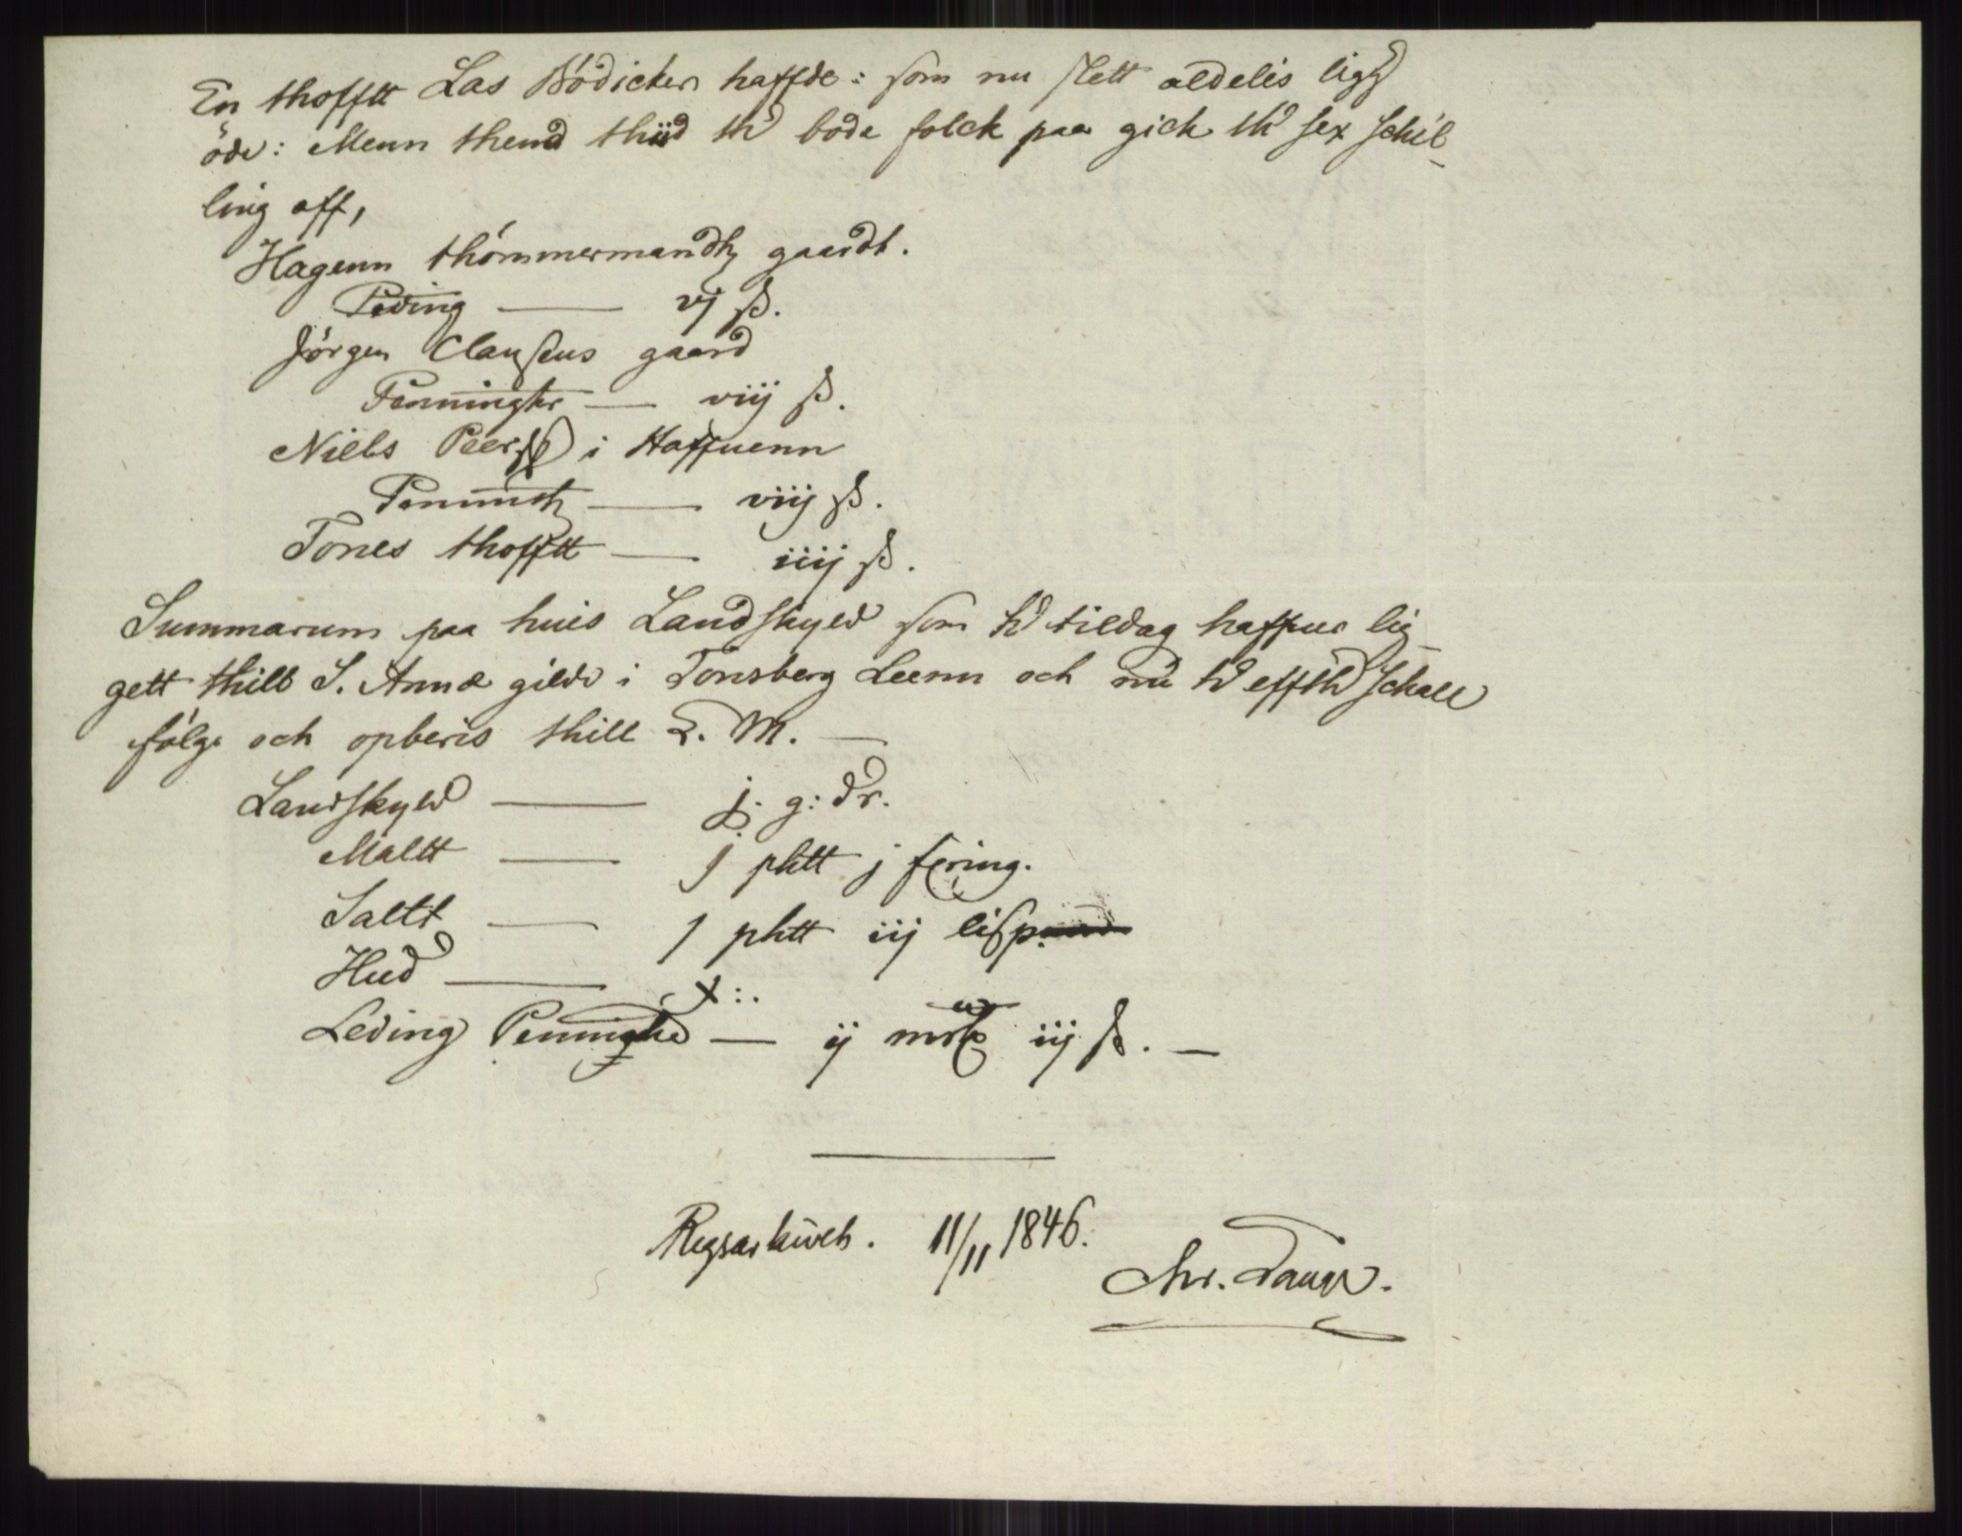 En thofftt Las Bödicker haffde: som nu slett aldelis ligg
öde: Menn thend thiid th bode folck paa gick th sex schil-
ling aff,
Hagenn thömmermandtz gaardt.
Peding — vj ß.
Jörgen Clausens gaard
Penninghe — viij ß.
Niels Peerss i Haffuenn
Penningh — viij ß.
Tones thofftt — iiij ß.
Summarum paa huis Landskyld som tildag haffuer lig-
gett thill S. Annæ gilde i Tönsberg Leenn och nu effth schall
fölge och opberis thill K. M. —
Landskyld — j. g: dr.
Maltt — j phtt j fering.
Saltt — j phtt iij lisp
Hud — x:.
Leding Penninghe — ij mrk iij ß. —
Rigsarkivet. 11/11 1846.
Chr. Lange.